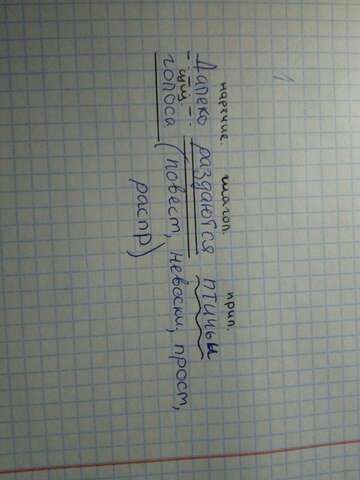 1
наречие. глагол. прил.
Далеко раздаются птичьи
сущ.
голоса (повест, невоскл, прост,
распр)